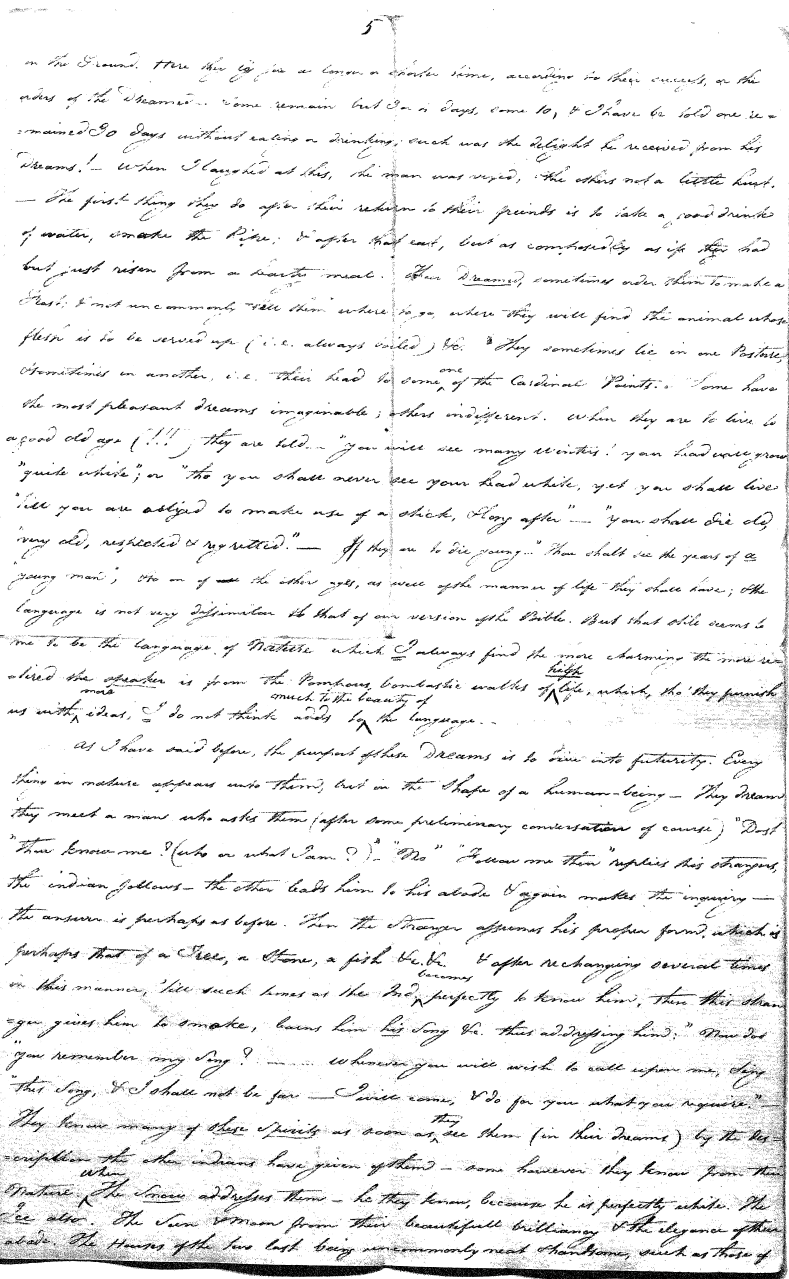 5
on the Ground. Here they lie for a longer or shorter time, according to their success, or the
orders of the Dreamed. Some remain but 3 or 4 days, some 10, & I have be told one re=
=mained 30 days without eating or drinking; such was the delight he received from his
Dreams! — When I laughed at this, the man was vexed, & the others not a little hurt.
— The first thing they do after their return to their friends is to take a good drink
of water, smoke the Pipe; & after that eat, but as composedly as if they had
but just risen from a hearty meal. Their Dreamed, sometimes order them to make a
Feast; & not uncommonly tell them where to go, where they will find the animal whose
flesh is to be served up (i.e. always boiled) &c. They sometimes lie in one Posture,
& sometimes in another, i.e. their head to some one of the Cardinal Points. Some have
the most pleasant dreams imaginable; others indifferent. When they are to live to
a good old age (!!!) they are told — "you will see many Winters! your head will grow
"quite white"; or "tho you shall never see your head white, yet you shall live
'till you are obliged to make use of a stick, & long after" — "you shall die old,
"very old, respected & regretted." — If they are to die young — "Thou shalt see the years of a
"young man", & so on of the other ages, as well of the manner of life they shall have; & the
language is not very dissimilar to that of our version of the Bible. But that stile seems to
me to be the language of Nature which I always find the more charming the more re=
=tired the speaker is from the Pompous, bombastic walks of high life, which, tho' they furnish
us with more ideas, I do not think adds much to the beauty of the language.
As I have said before, the purport of these Dreams is to dive into futurity. Every
thing in nature appears unto them, but in the Shape of a human-being — They dream
they meet a man who asks them (after some preliminary conversation of course) "Dost
"thou know me? (who or what I am?)" — "No" "Follow me then" replies this stranger,
the indian follows — the other leads him to his abode & again makes the inquiry —
the answer is perhaps as before. Then the Stranger assumes his proper form, which is
perhaps that of a Tree, a Stone, a fish &c. &c. & after rechanging several times
in this manner, 'till such times as the Ind. becomes perfectly to know him, then this stran=
=ger gives him to smoke, learns him his Song &c. thus addressing him: "Now do
"you remember my Song? — Whenever you will wish to call upon me, Sing
"this Song, & I shall not be far — I will come, & do for you what you require." —
They know many of these Spirits as soon as they see them (in their dreams) by the des=
=cription the other indians have given of them — some however they know from their
Nature. When The Snow addresses them — he they know, because he is perfectly white. The
Ice also. The Sun & Moon from their beautifull brilliancy & the elegance of their
abode. The Houses of the two last being uncommonly neat & handsome, such as those of